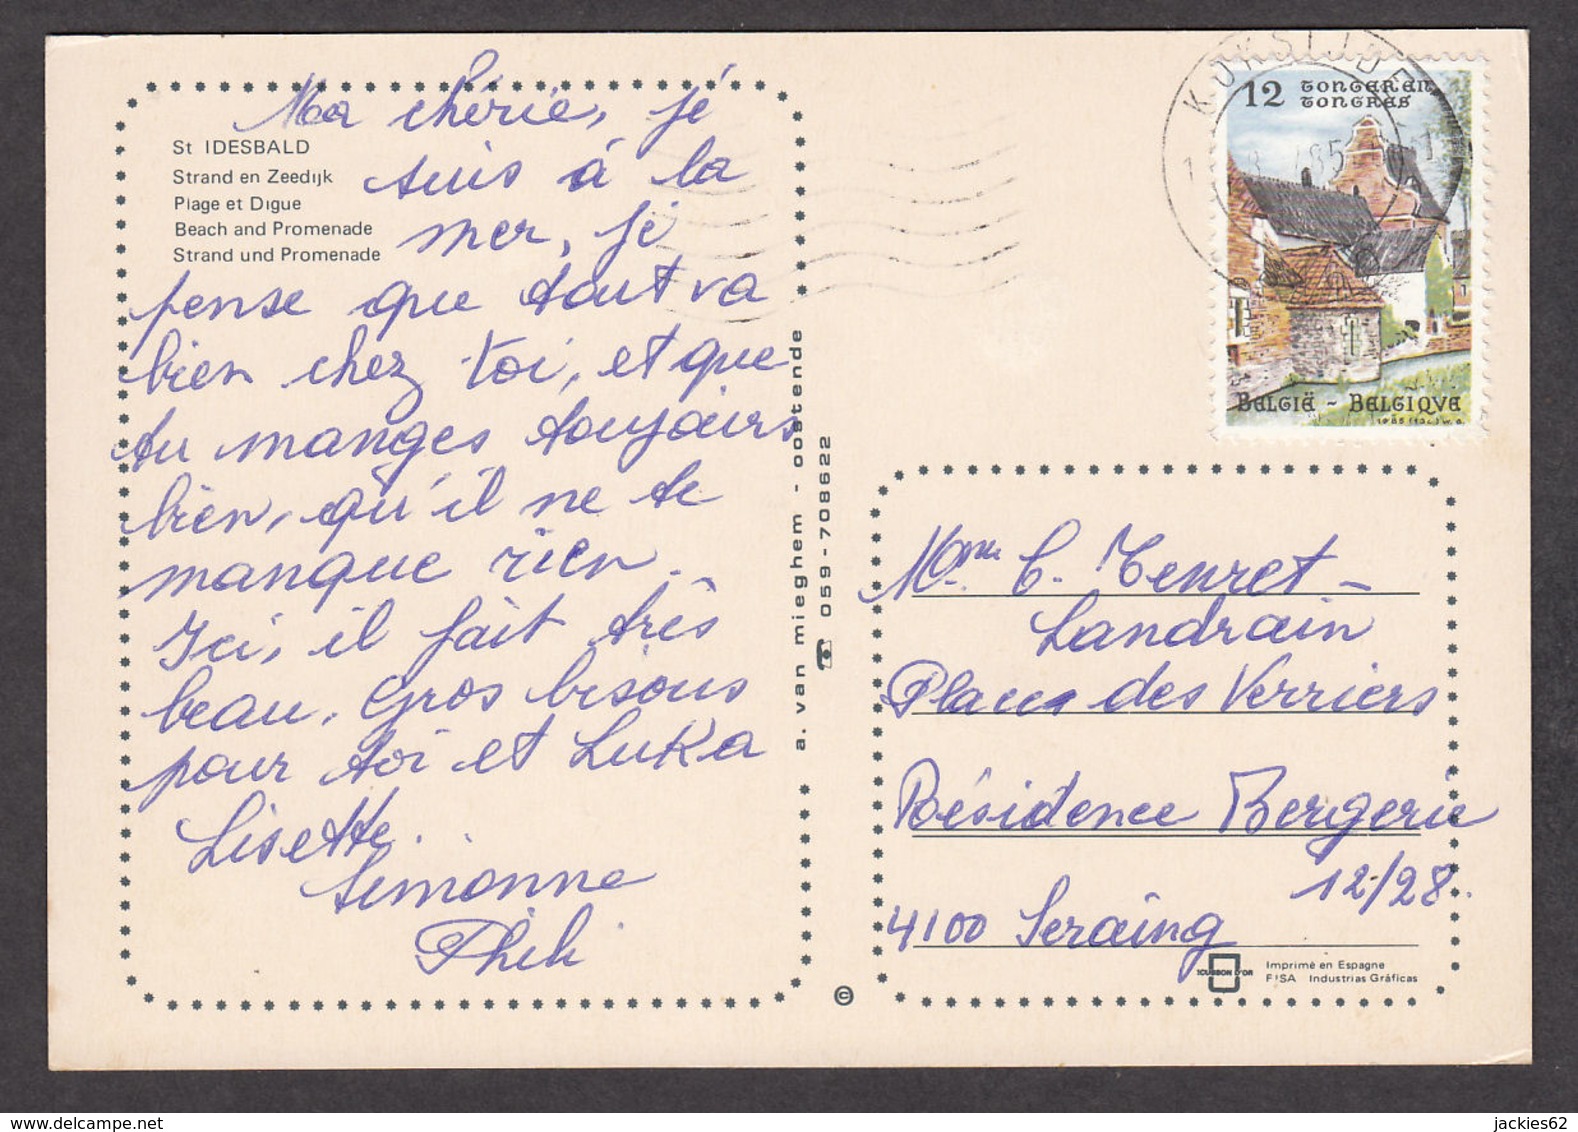 St IDESBALD
Strand en Zeedijk
Plage et Digue
Beach and Promenade
Strand und Promenade
Ma chérie, jé
suis à la
mer, jé
pense que tout va
bien chez toi, et que
tu manges toujours
bien, qu'il ne te
manque rien.
Ici, il fait très
beau. Gros bisous
pour toi et Luka
Lisette.
Simonne
a. van mieghem - oostende
059-708622
©
KOKSIJDE
12 TONGEREN
TONGRES
BELGIË - BELGIQVE
Mme C. Tenret-
Landrain
Place des Verriers
Résidence Bergerie
12/28.
4100 Seraing
Imprimé en Espagne
FISA Industrias Gráficas
jackies62